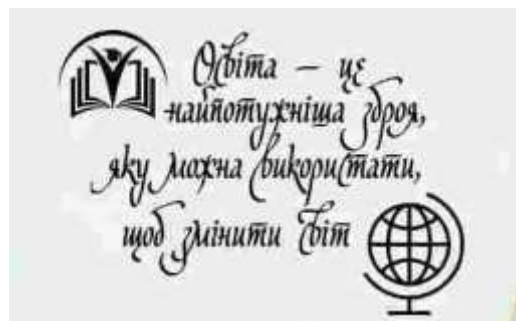 Освіта – це
найпотужніша зброя,
яку можна використати,
щоб змінити світ